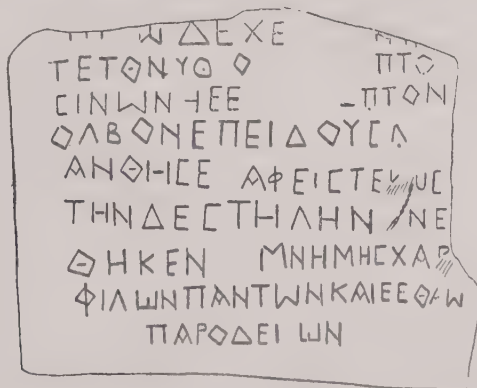 Ω ΔΕΧΕ
ΤΕΤΟΝΥΘ Ο ΠΤΟ
ϹΙΝΩΝ ΗΕΕ ΠΤΟΝ
ΟΛΒΟΝΕΠΕΙΔΟΥϹΛ
ΑΝΘΗϹΕ ΑΦΕΙϹΤΕ
ΤΗΝΔΕϹΤΗΛΗΝ ΝΕ
ΘΗΚΕΝ ΜΝΗΜΗϹΧΑΡ
ΦΙΛΩΝΠΑΝΤΩΝΚΑΙΕΕΘ Ω
ΠΑΡΟΔΕΙ ΩΝ